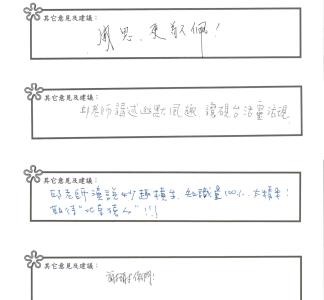 其它意見及建議：
風思，更敬佩！
其它意見及建議：
邱老師講述幽默風趣，讓硯台活靈活現。
其它意見及建議：
邱老師演說妙趣橫生，知識量100%，大精采！
期待"北京猿人"!!!
其它意見及建議：
謝謝你們！